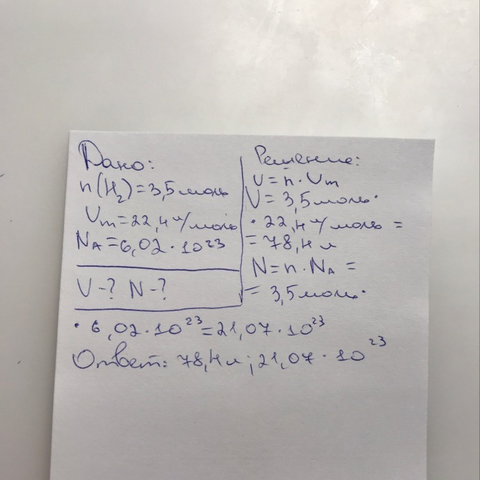 Дано:
n(H₂)=3,5 моль
Vm=22,4 л/моль
NA=6,02·10²³
V-? N-?
Решение:
V=n·Vm
V=3,5 моль·
·22,4 л/моль=
=78,4 л
N=n·NA=
=3,5 моль·
·6,02·10²³=21,07·10²³
Ответ: 78,4 л; 21,07·10²³